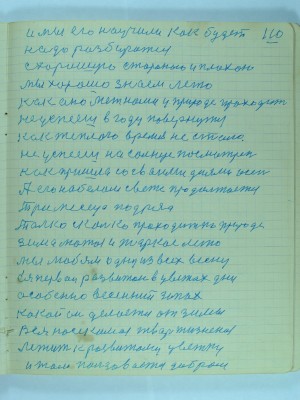 и мы его научили как будет 110
надо разбиратся
с хорошую стороною и плохою
мы хорошо знаем лето
как оно летнему у природе проходит
не успееш в году повернутся
как теплого время не стало
не успееш на солнце посмотреть
как пришла со своими днями осен
А его на белом свете продолжает
Три месяца подряд
Толко сколко проходит по природе
зима лютая и жаркое лето
мы любим одну из всех весну
за первой развитой в цветах дни
особенно весенний запах
какой он делается от зимы
Вся насекомая тварь жизненая
лежит к развитому цветку
и там ползовается добром